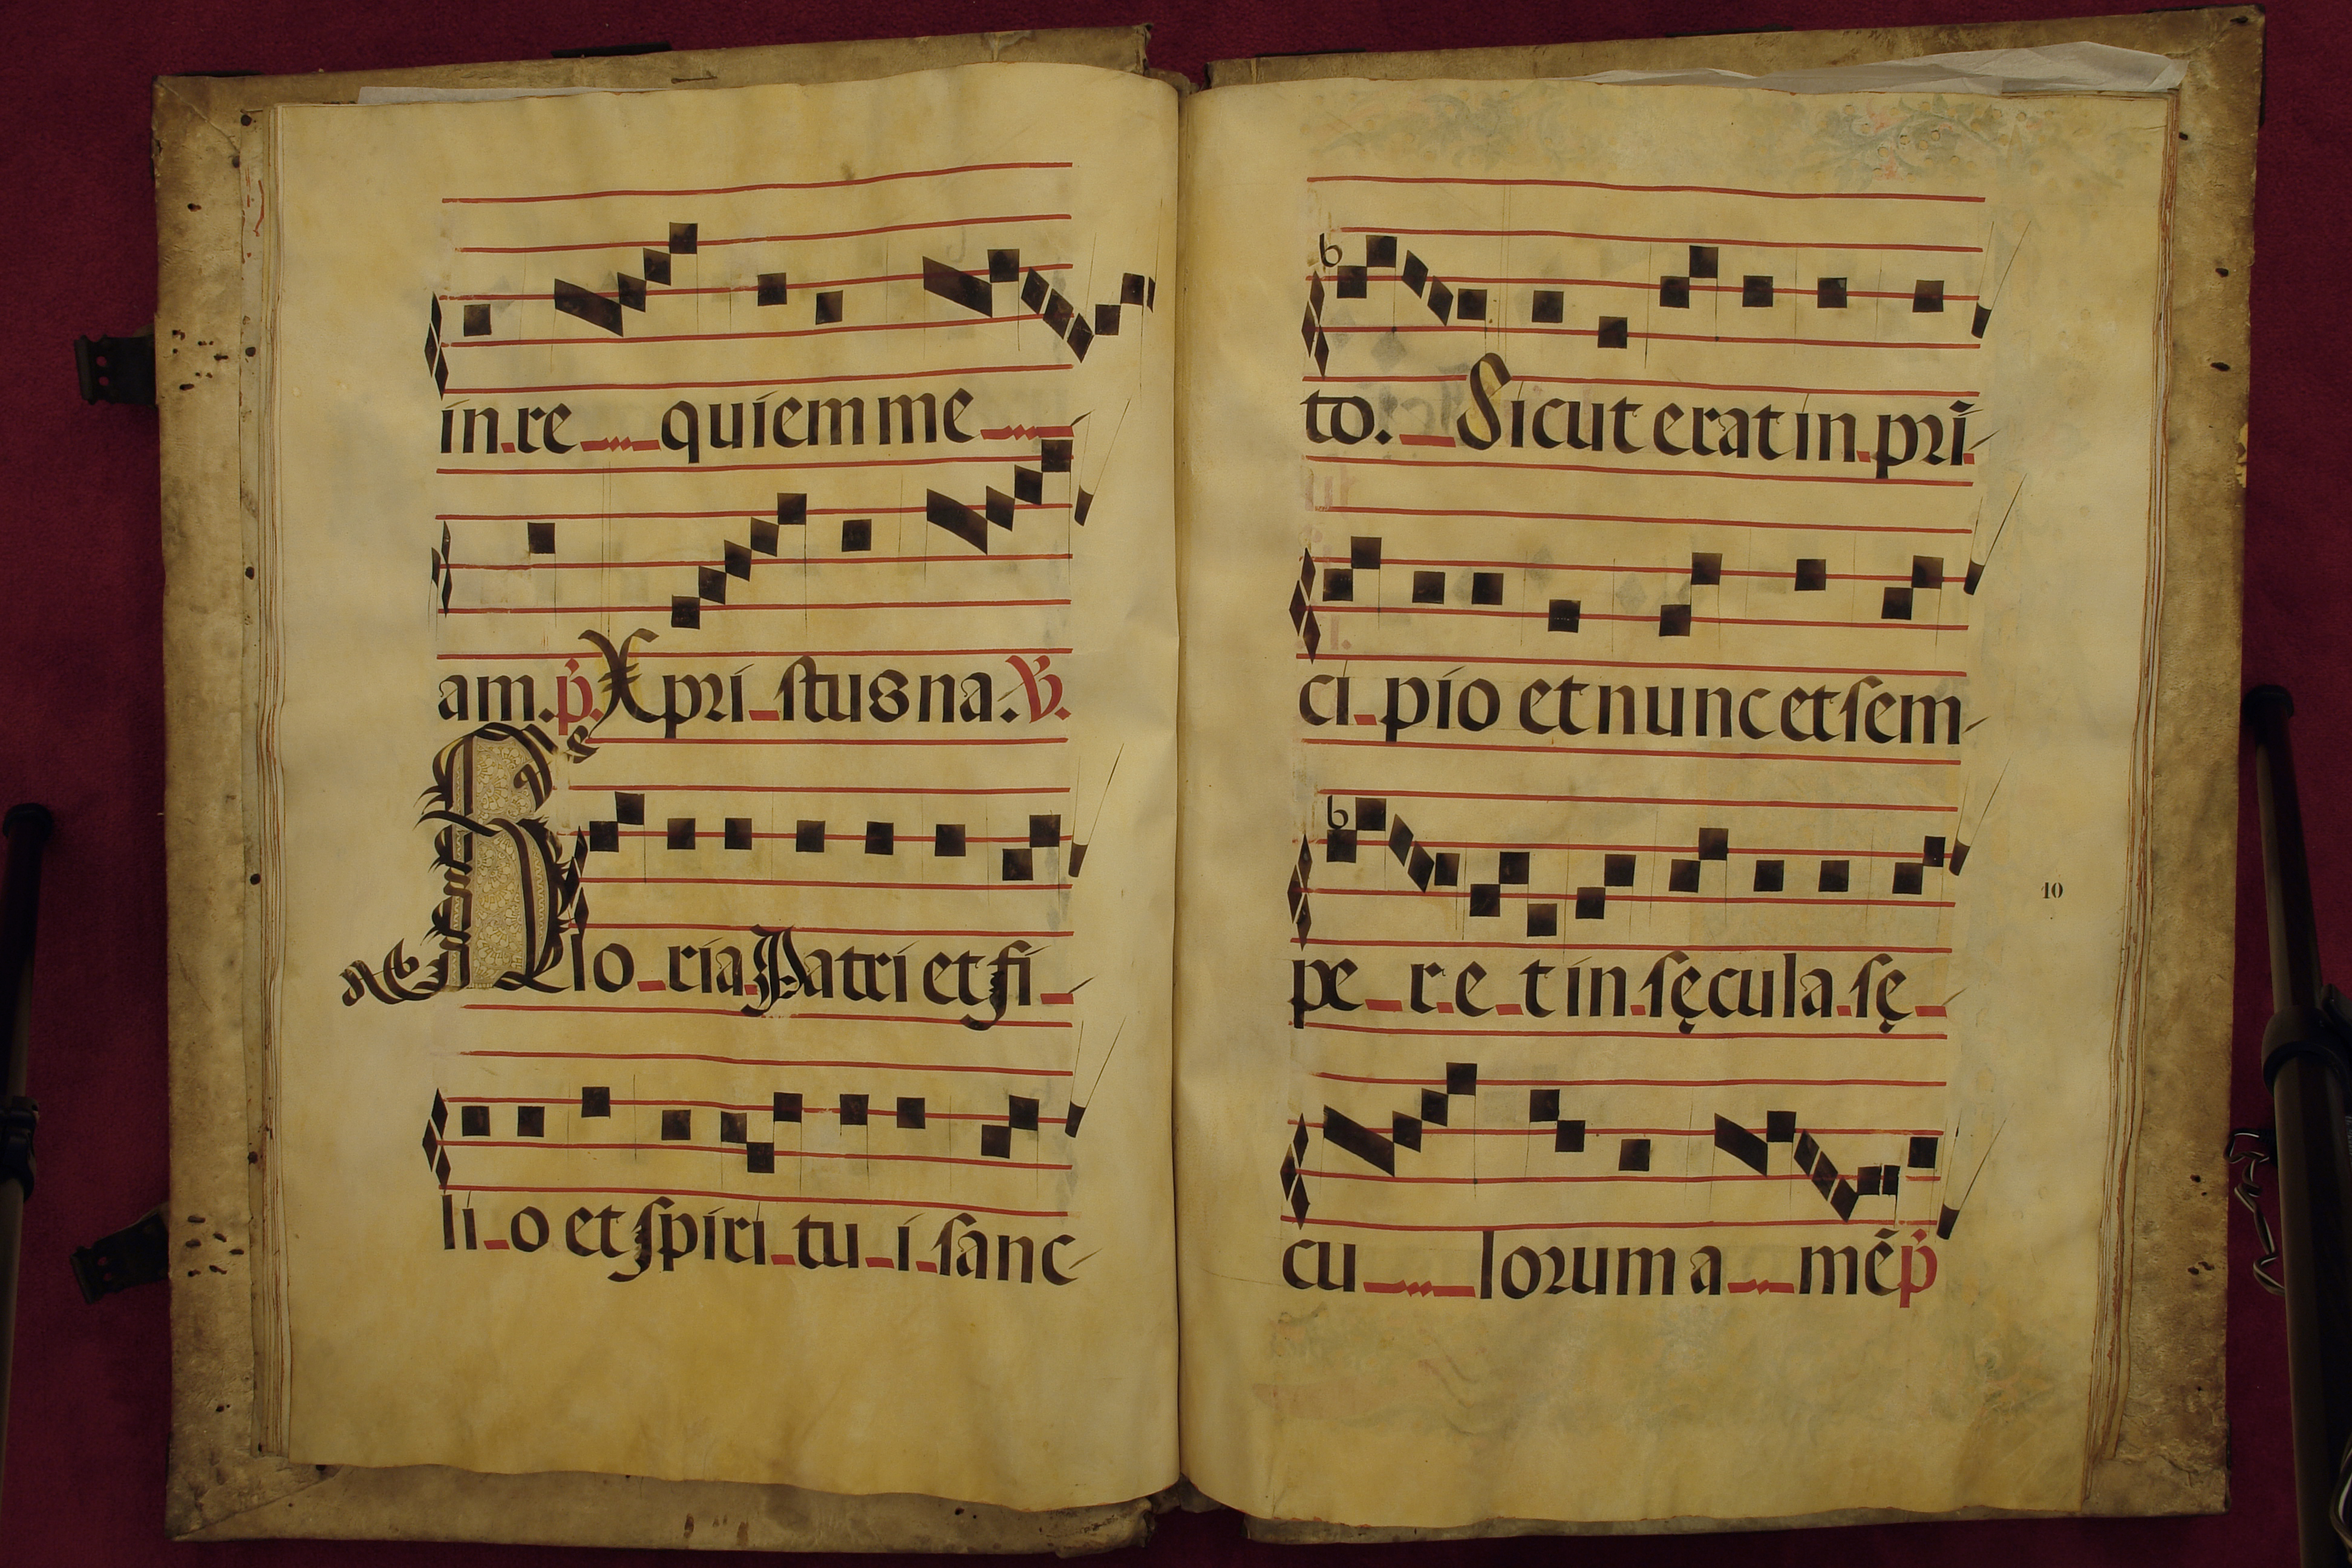 in re quiem me
am. p. Xpristus na. V.
Gloria Patri et fi
lio et spiritui sanc
to. Sicut erat in pri
cipio et nunc et sem
10
per et in sęcula sę
culorum a mē p